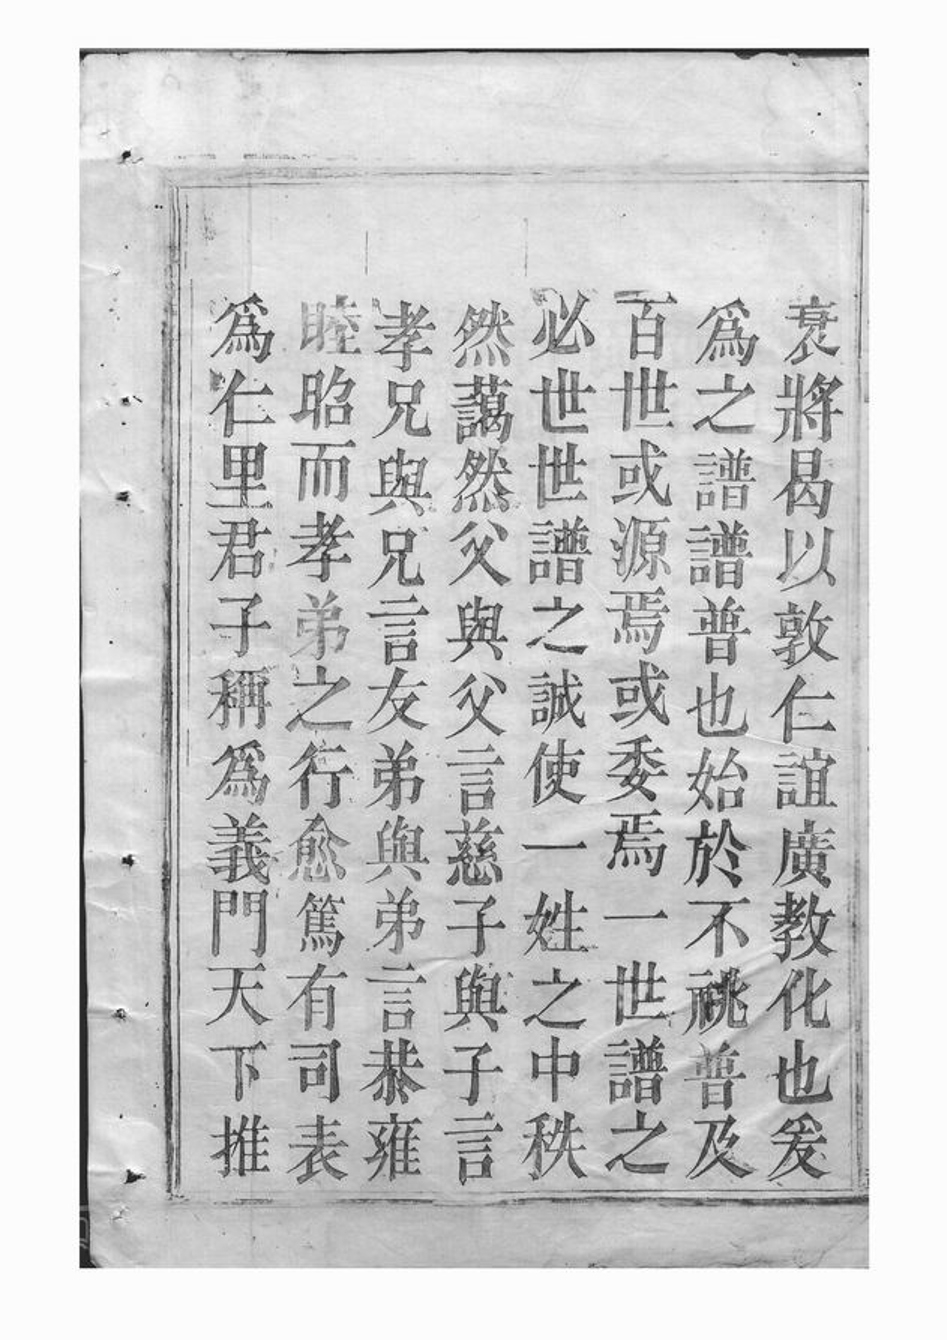 衰將曷以敦仁誼廣教化也爰
爲之譜譜普也始於不祧普及
百世或源焉或委焉一世譜之
必世世譜之誠使一姓之中秩
然藹然父與父言慈子與子言
孝兄與兄言友弟與弟言恭雍
睦昭而孝弟之行愈篤有司表
爲仁里君子稱爲義門天下推